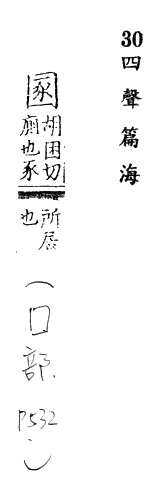 30四聲篇海
圂
胡困切
廁也豕
所居
也
(囗部 P532)